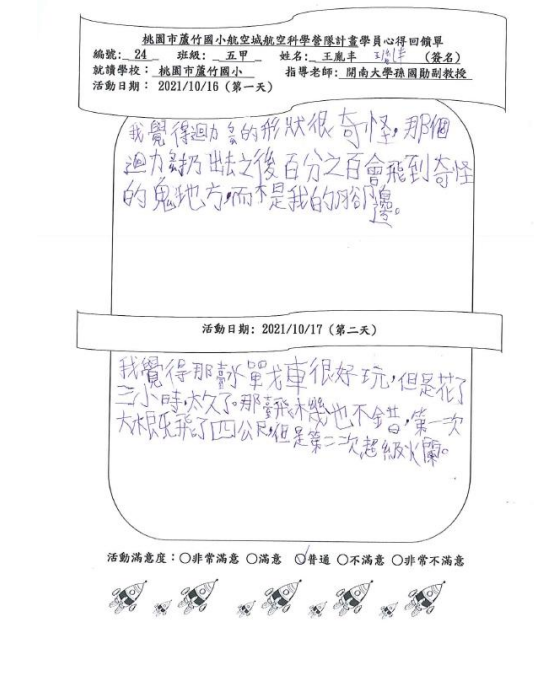 桃園市蘆竹國小航空城航空科學營隊計畫學員心得回饋單
編號: 24 班級: 五甲 姓名: 王胤丰 王胤丰 (簽名)
就讀學校: 桃園市蘆竹國小 指導老師: 開南大學孫國勛副教授
活動日期: 2021/10/16 (第一天)
我覺得迴力鏢的形狀很奇怪,那個
迴力鏢扔出去之後百分之百會飛到奇怪
的鬼地方,而不是我的腳邊。
活動日期: 2021/10/17 (第二天)
我覺得那臺水單戈車很好玩,但是花了
三小時,太久了。那臺飛機也不錯,第一次
大概飛了四公尺,但是第二次超級火爛。
活動滿意度:○非常滿意 ○滿意 ○普通 ○不滿意 ○非常不滿意